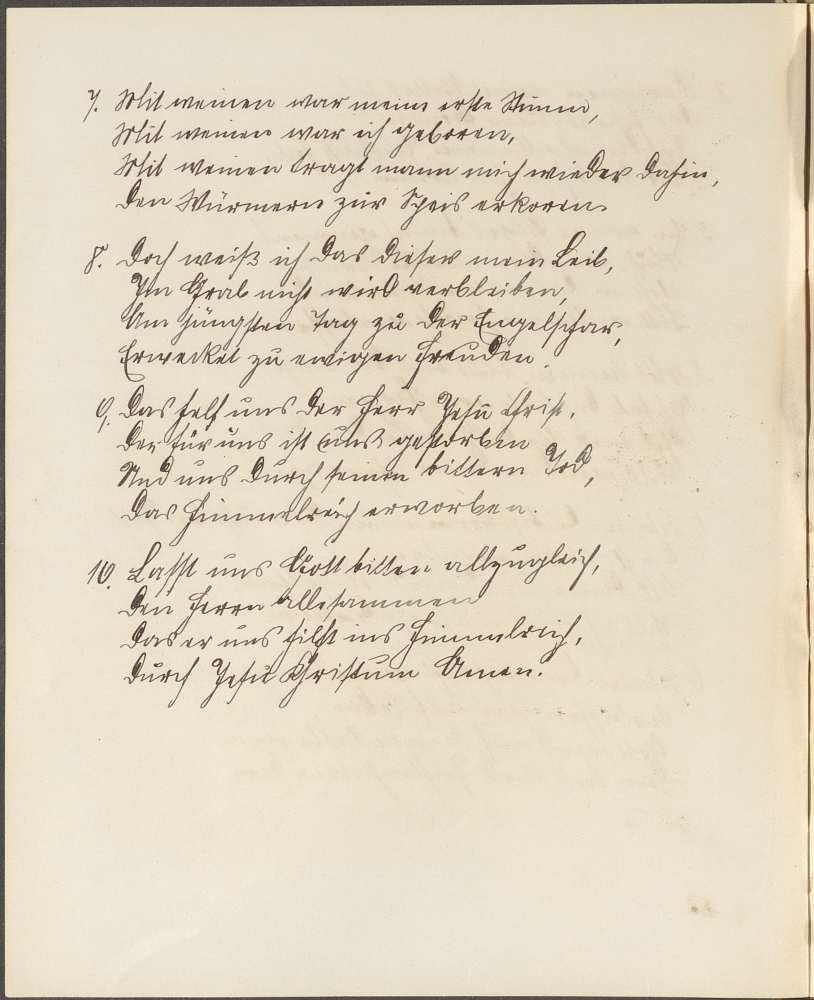 7. Mit weinen war meine erste Stimm,
Mit weinen war ich geboren,
Mit weinen tragt mann mich wieder dahin,
den Würmern zur Speis erkoren.
8. Doch weiß ich das dieser mein Leib,
Im Grab nicht wird verbleiben,
Am jüngsten Tag zu der Engelschar,
Erwecket zu ewigen Freuden.
9. Das helf uns der Herr Jesu Christ,
der für uns ist uns gestorben
Und uns durch seinen bittern Tod,
das Himmelreich erworben.
10. Lasst uns Gott bitten allzugleich,
den Herrn allesammen
das er uns hilft ins Himmelreich,
durch Jesu Christum Amen.